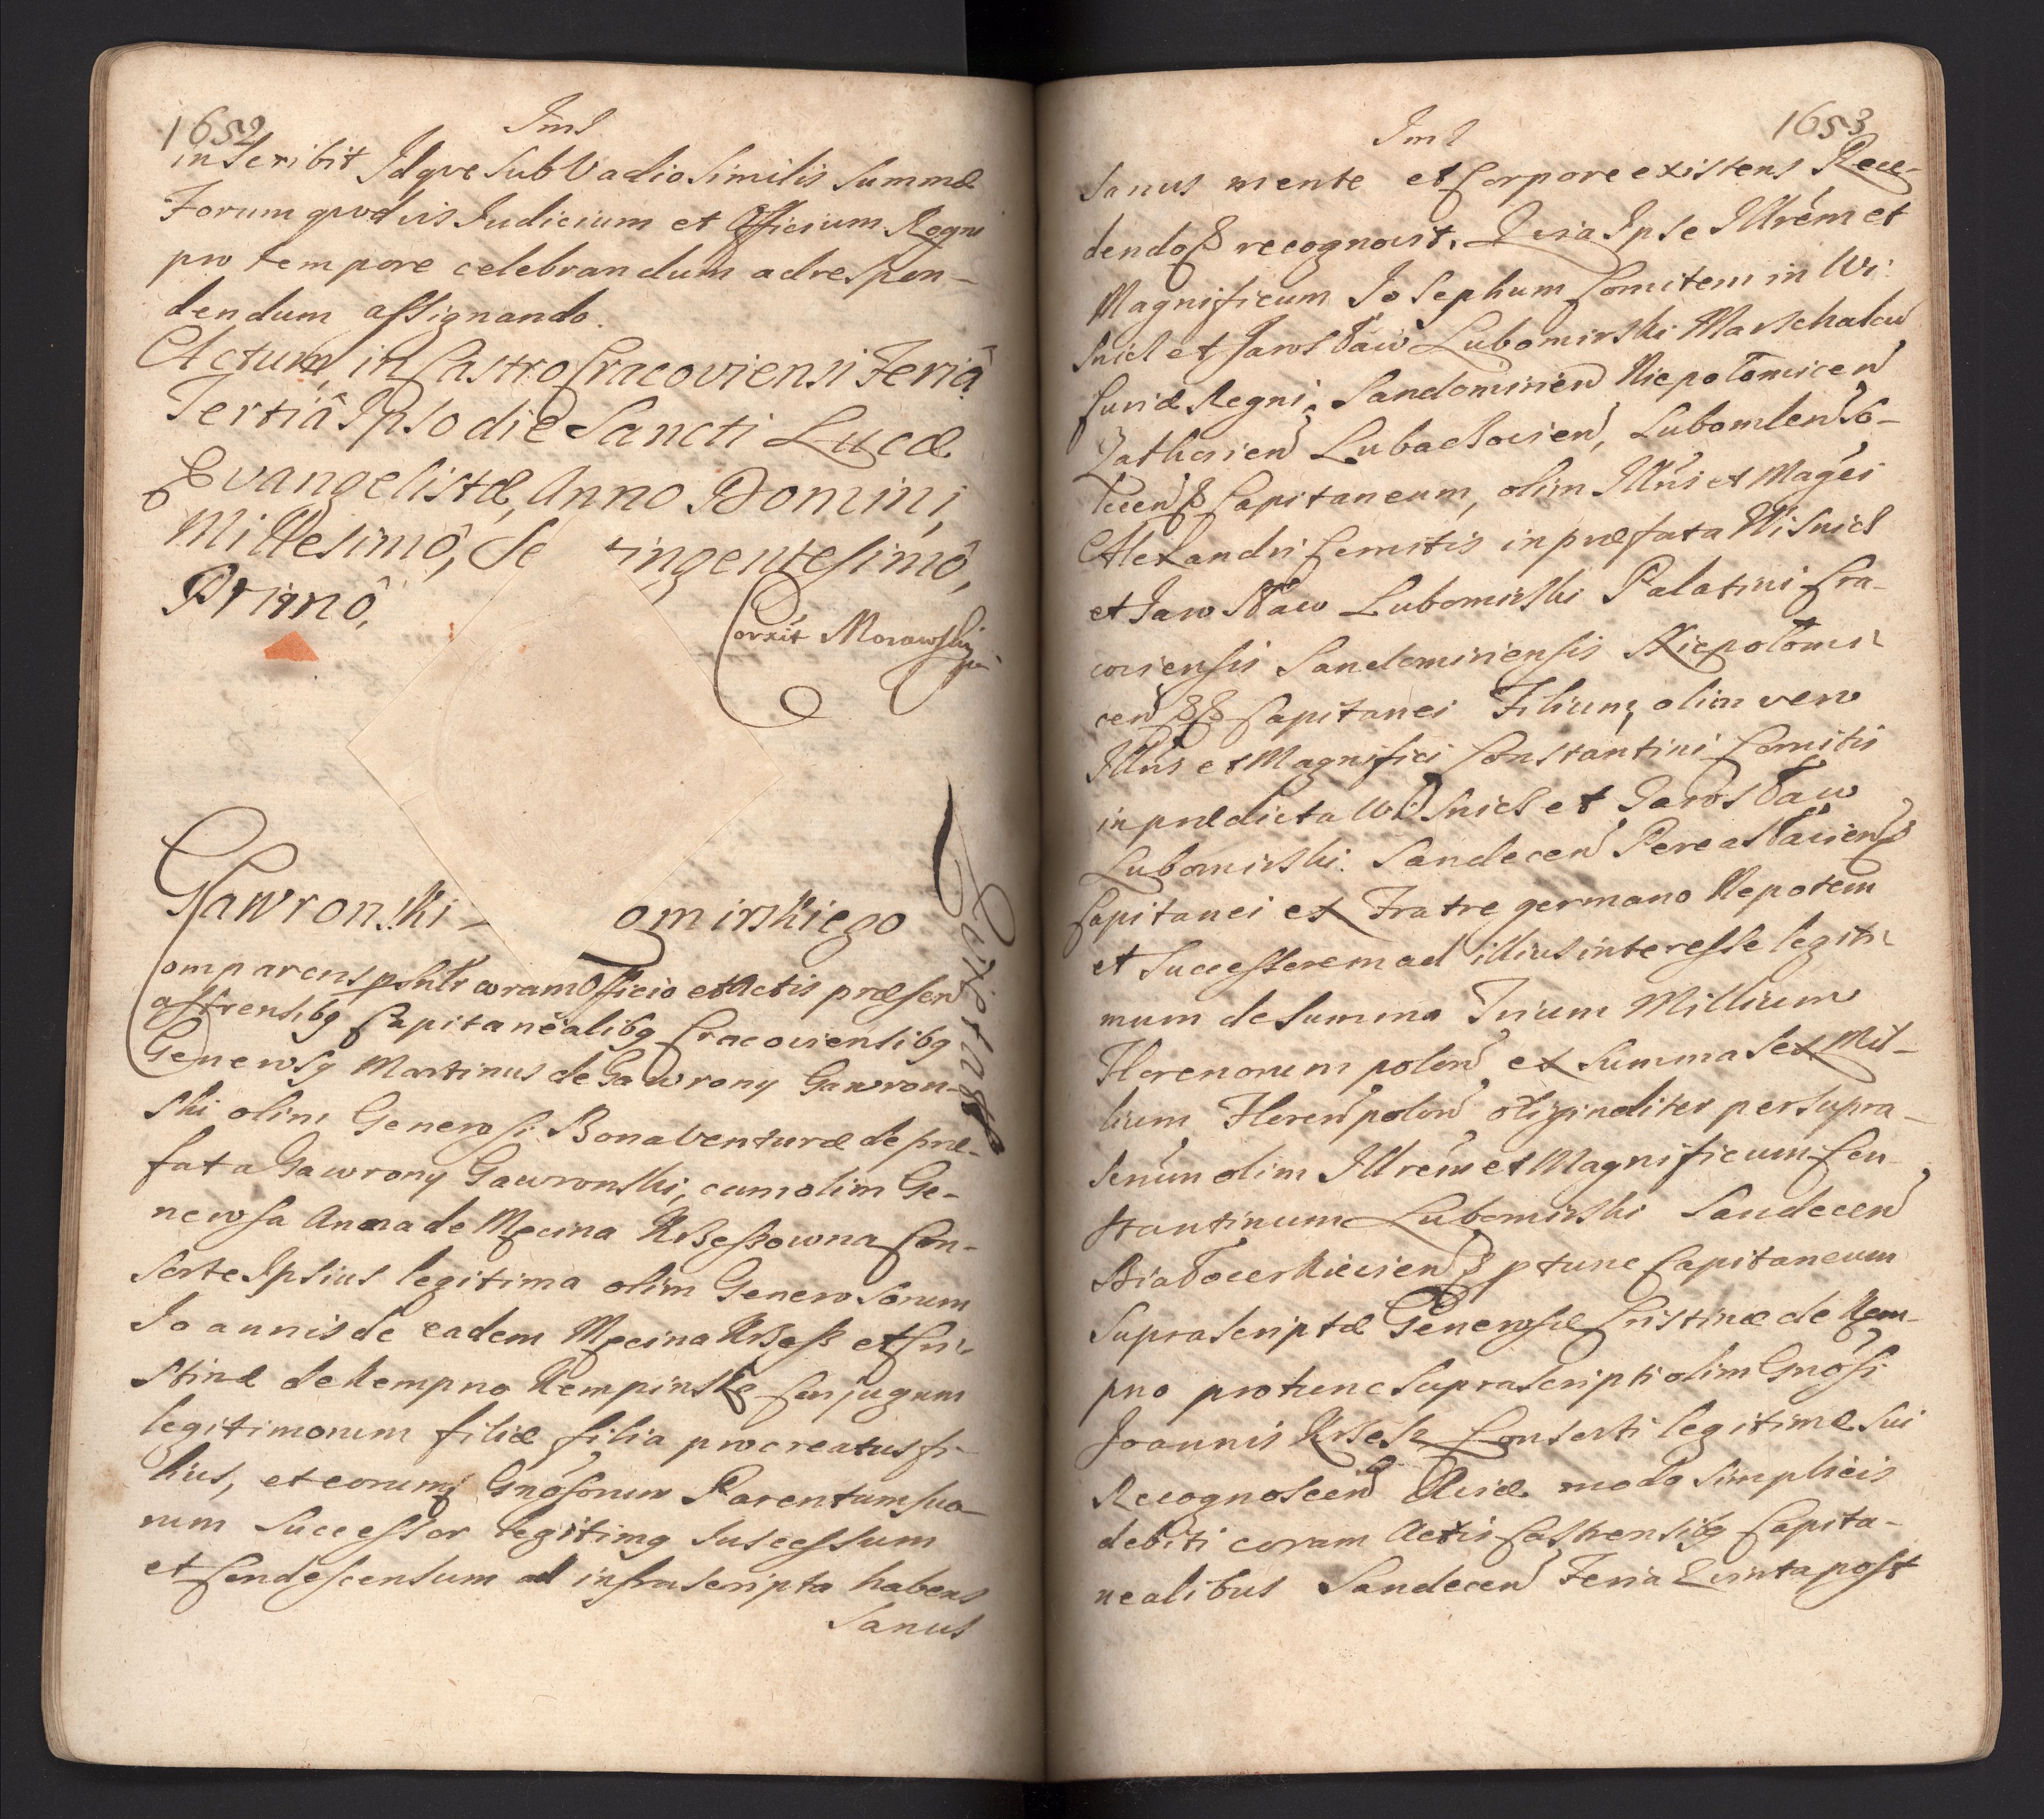 1652
Ims
inscribit Idqve Sub Vadio Similis Summæ
Forum qvodvis Iudicium et Officium Regni
pro tempore celebrandum ad respon-
dendum assignando.
Actum, in Castro Cracoviensi Feriâ
Tertiâ Ipso die Sancti Lucæ
Evangelistæ, Anno Domini,
Millesimô, Se tingentesimô,
Primô,
Corxit Morawski
Gawronski - omirskiego
Comparens psnlr coram Officio et Actis præsen
Castrensibq Capitanealibq Cracoviensibq
Generosq Martinus de Gawrony Gawron-
ski olim Generosi Bonaventuræ de præ-
fata Gawrony Gawronski, cum olim Ge-
nerosa Anna de Męcina Krzeszowna Con-
sorte Ipsius legitima olim Generosorum
Ioannis de eadem Męcina Krzesz et Cri-
stinæ de Kempno Kempinski Conjugum
legitimorum filiæ filia procreatus fi-
lius, et eorumq Gnosorum Parentum suo-
rum Successor legitimq Suscessum
et Condescensum ad infrascripta habens
Sanus
Qvietatio
Ims
1653
Sanus mente et Corpore existens Rece-
dendo ß recognovit. Qvia Ipse Illrem et
Magnificum Iosephum Comitem in Wi
snicz et Jarosław Lubomirski Marschalcu
Curiæ Regni, Sandomirien Niepołomicen
Zathorien Lubaczovien, Lubomlen So-
lecen ß Capitaneum, olim Illris et Magci
Alexandri Comitis in præfata Wisnicz
et Jarosław Lubomirski Palatini Cra-
coviensis Sandomiriensis Niepołomi
cen ßß Capitanei Filium, olim vero
Illris et Magnifici Constantini Comitis
in prædicta Wisnicz et Jarosław
Lubomirski Sandecen Pereasłavien ß
Capitanei ex Fratre germano Nepotem
et Successorem ad illius interesse legiti
mum de Summa Trium Millium
Florenorum polon ex Summa Sex Mil-
lium Floren polon originaliter per supra-
scrium olim Illrem et Magnificum Con
stantinum Lubomirski Sandecen
Białocerkievien ß ptunc Capitaneum
Suprascriptæ Generosæ Cristinæ de Kem-
pno protunc Suprascripti olim Gnosi
Joannis Krzesz Consorti legitimæ Sui
Recognoscen Qviæ modo Simplicis
debiti coram Actis Castrensibq Capita-
nealibus Sandecen Feria Qvinta post